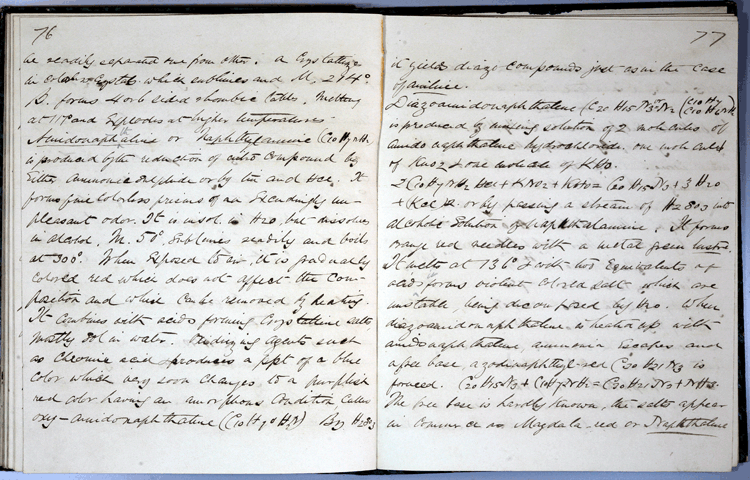 76
be readily separated one from other. a Crystallize
in crystals which sublimes and M. 214°
B. forms 4 or 6 sided rhombic tables, melting
at and Explodes at higher temperatures.
Amidonaphthaline or Naphthylamine (C10 H7 NH2
is produced by the reduction of nitro Compound by
Either ammonic sulphide or by tin and HCl. It
forms fine colorless prisms of an Exceedingly un-
pleasant odor. It is insol. in H2O, but dissolves
in alcohol, M. 50°. Sublimes readily and boils
at 300°. When Exposed to air, it is gradually
colored red which does not affect the Com-
position and which can be removed by heating.
It combines with acids forming Crystalline salts
mostly sol in water. Oxidizing agents such
as Chromic acid produces a ppt of a blue
color which very soon changes to a purplish
red color having an amorphous condition called
oxy-amidonaphthaline By
77
it yields diazo compounds just as in the case
of aniline.
Diazoamidonaphthaline (C20 H15 N3
is produced by mixing solution of 2 molecules of
amido naphthaline hydrochloride one molecule
of KNO2 & one molecule of KHO.
2 C10 H7 NH2 HCl + KNO2 + KHO = C20 H15 N3 + 3 H2O
+ KCl or by passing a stream of into
alcoholic solution of naphthalamine. It forms
orange red needles with a metal green lustre.
It melts at 136° & with two Equivalents of
acid forms violent colored salts which are
unstable, being decomposed by H2O. When
diazoamidonaphthaline is heated up with
amidonaphthaline ammonia Escapes and
a free base, azodinaphthyl-red C30 H21 N3 is
formed. C20 H15 N3 + C10 H9 N = C30 H21 N3 + NH3.
The free base is hardly known, the salts appear
in commerce as Magdala-red or Naphthaline